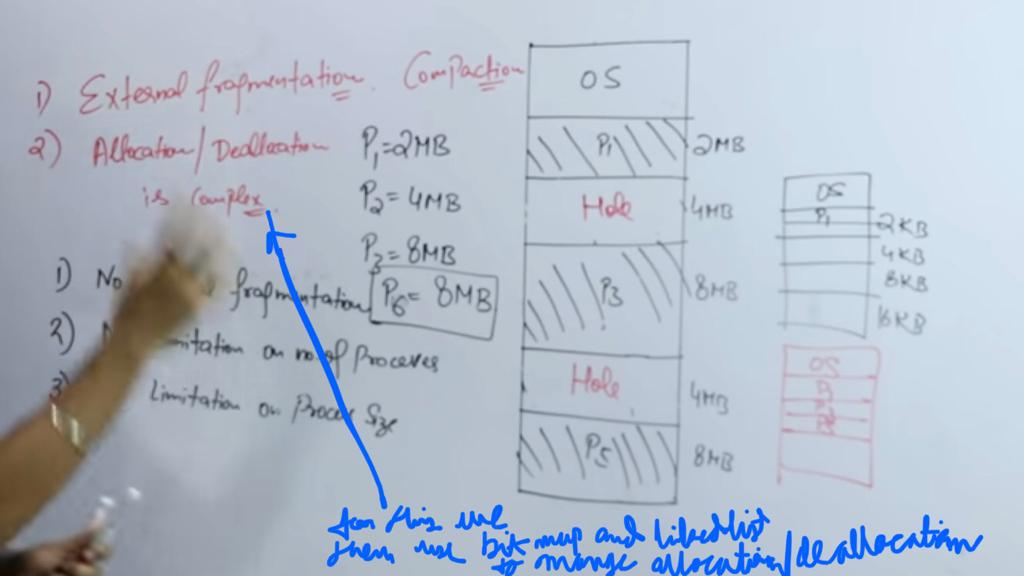 1) External fragmentation. Compaction
2) Allocation/Deallocation
is Complex
P1=2MB
P2=4MB
P3=8MB
P6= 8MB
1) No fragmentation
2) mitation on no. of Processes
3) Limitation on Process Size
OS
P1 2MB
Hole 4MB
P3 8MB
Hole 4MB
P5 8MB
OS
P1 2KB
4KB
8KB
16KB
OS
P1
for this we
them use bit map and linked list
to mange allocation/deallocation